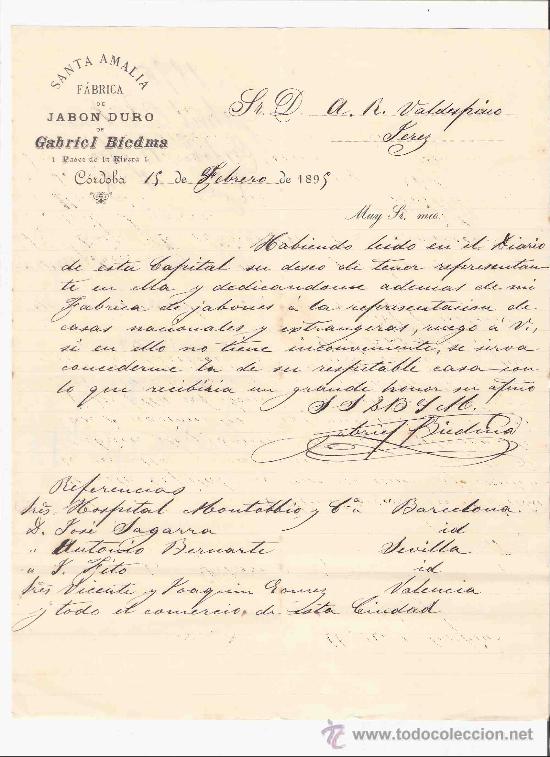 SANTA AMALIA
FÁBRICA
DE
JABON DURO
DE
Gabriel Biedma
1 Paseo de la Rivera 1
Córdoba 15 de Febrero de 1895
Sr. D. A. R. Valdespino
Jerez
Muy Sr. mio:
Habiendo leido en el Diario
de esta Capital su deseo de tener representan
te en ella y dedicandome ademas de mi
Fabrica de jabones á la representacion de
casas nacionales y extrangeras, ruego á V.,
si en ello no tiene inconveniente, se sirva
concederme la de su respitable casa con
lo que recibiria un grande honor su afmo
S S Q B S M.
Gabriel Biedma
Referencias
Sres. Hospital Montobbio y Cª " Barcelona
D. José Sagarra id
" Antonio Bernarte Sevilla
" J. Fito id
Sres Vicente y Joaquin Gomez Valencia
y todo el comercio de esta Ciudad
www.todocoleccion.net